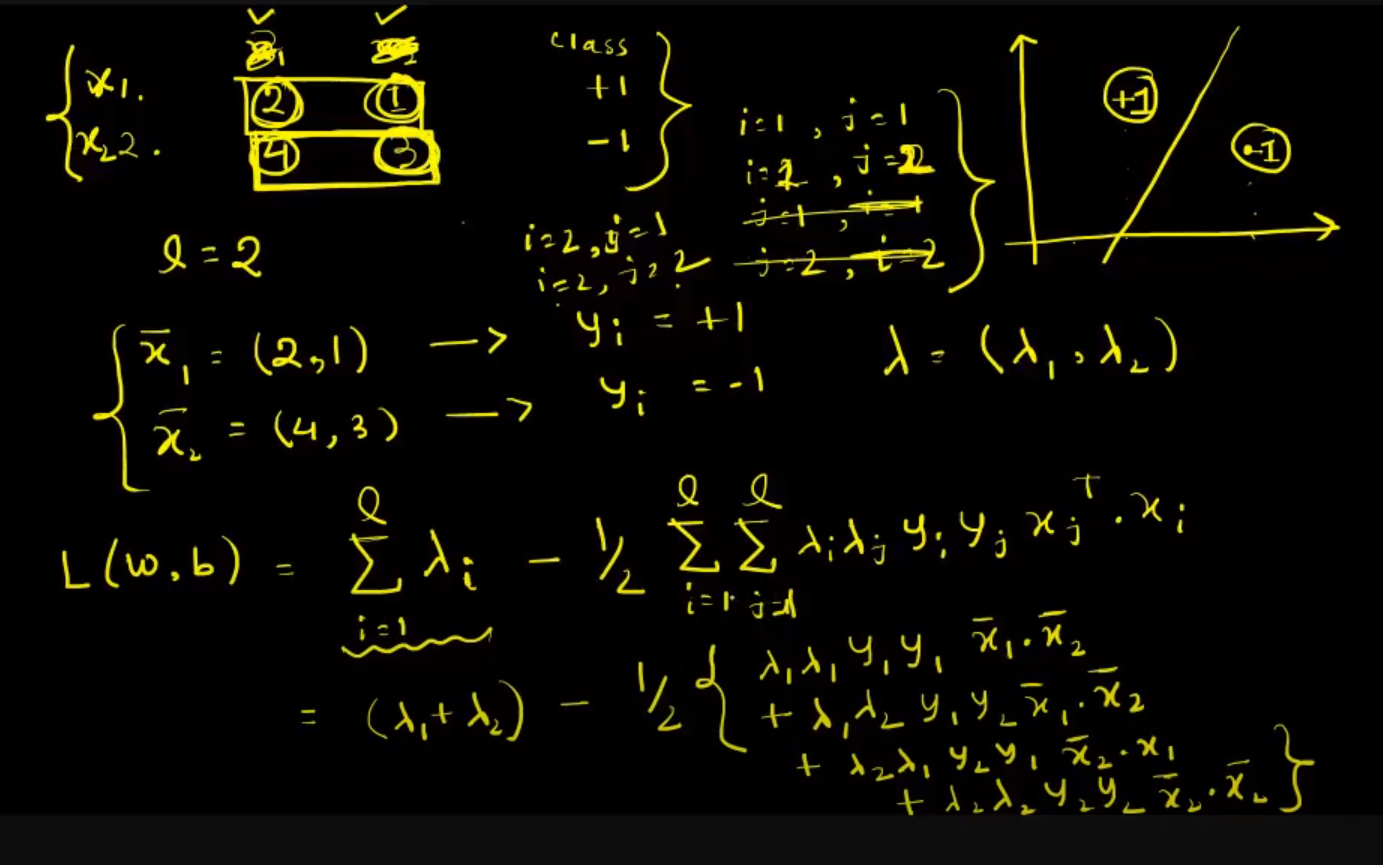 class
x1. 2 1 +1
x₂2. 4 3 -1
i=1, j=1
i=2, j=2
j=1, i=1
j=2, i=2
+1
-1
l = 2
i=2, j=1
i=2, j=2
x̄₁ = (2,1) → yᵢ = +1
x̄₂ = (4,3) → yᵢ = -1
λ = (λ₁, λ₂)
L(w,b) = Σᵢ₌₁ˡ λᵢ - 1/2 Σᵢ₌₁ˡ Σⱼ₌₁ˡ λᵢλⱼ yᵢ yⱼ xⱼᵀ . xᵢ
= (λ₁+λ₂) - 1/2 { λ₁λ₁ y₁y₁ x̄₁.x̄₂
+ λ₁λ₂ y₁y₂ x̄₁.x̄₂
+ λ₂λ₁ y₂y₁ x̄₂.x₁
+ λ₂λ₂ y₂y₂ x̄₂.x̄₂ }